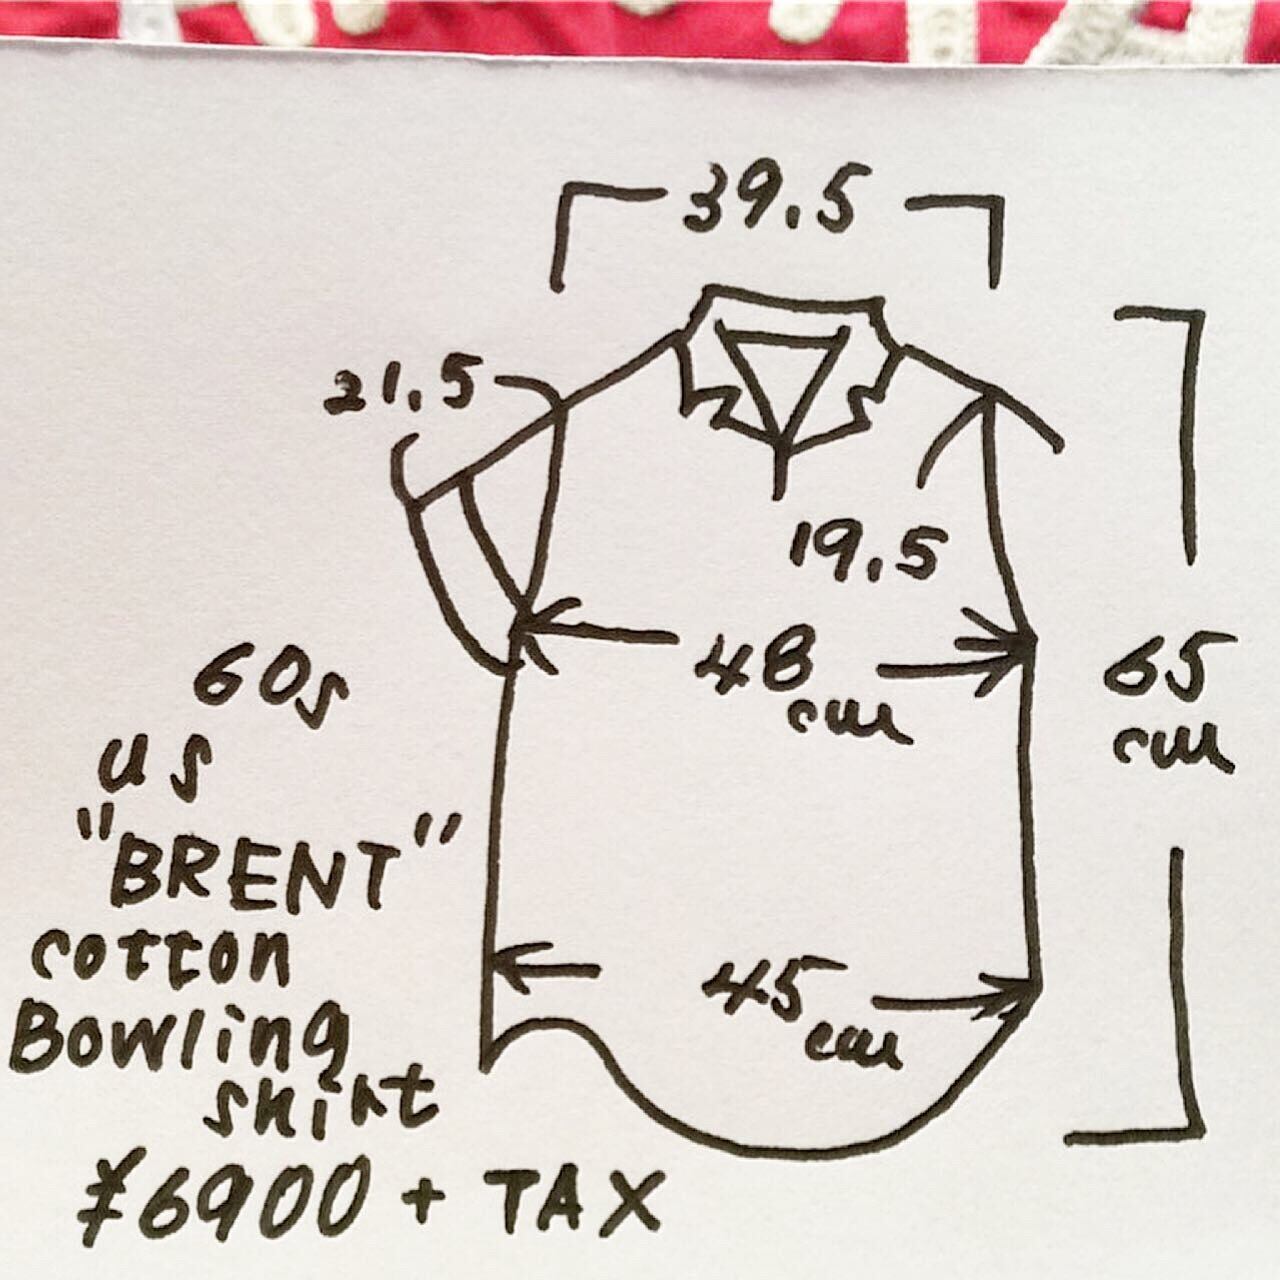 39.5
21.5
19.5
48
cm
65
cm
45
cm
60s
us
"BRENT"
cotton
Bowling
shirt
¥6900 + TAX